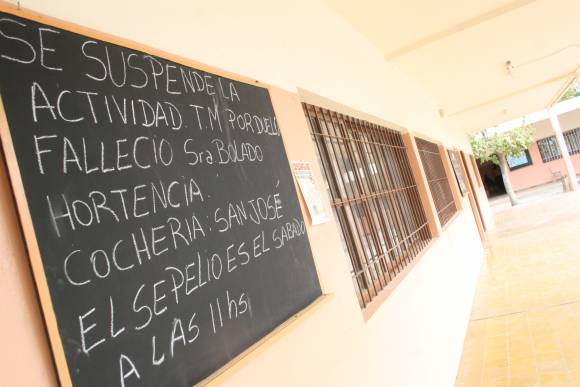 SE SUSPENDE LA
ACTIVIDAD. T.M POR DUELO
FALLECIO Sra. BOLADO
HORTENCIA.
COCHERIA: SAN JOSÉ
EL SEPELIO ES EL SABADO
A LAS 11 hs